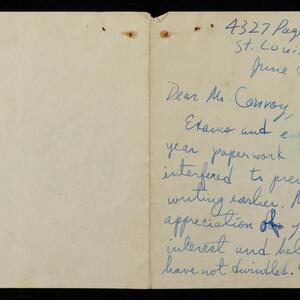 4327 Pag
St. Loui
June
Dear Mr. Conroy,
Exams and e
year paperwork
interfered to prev
writing earlier. M
appreciation of y
interest and hel
have not dwindled.